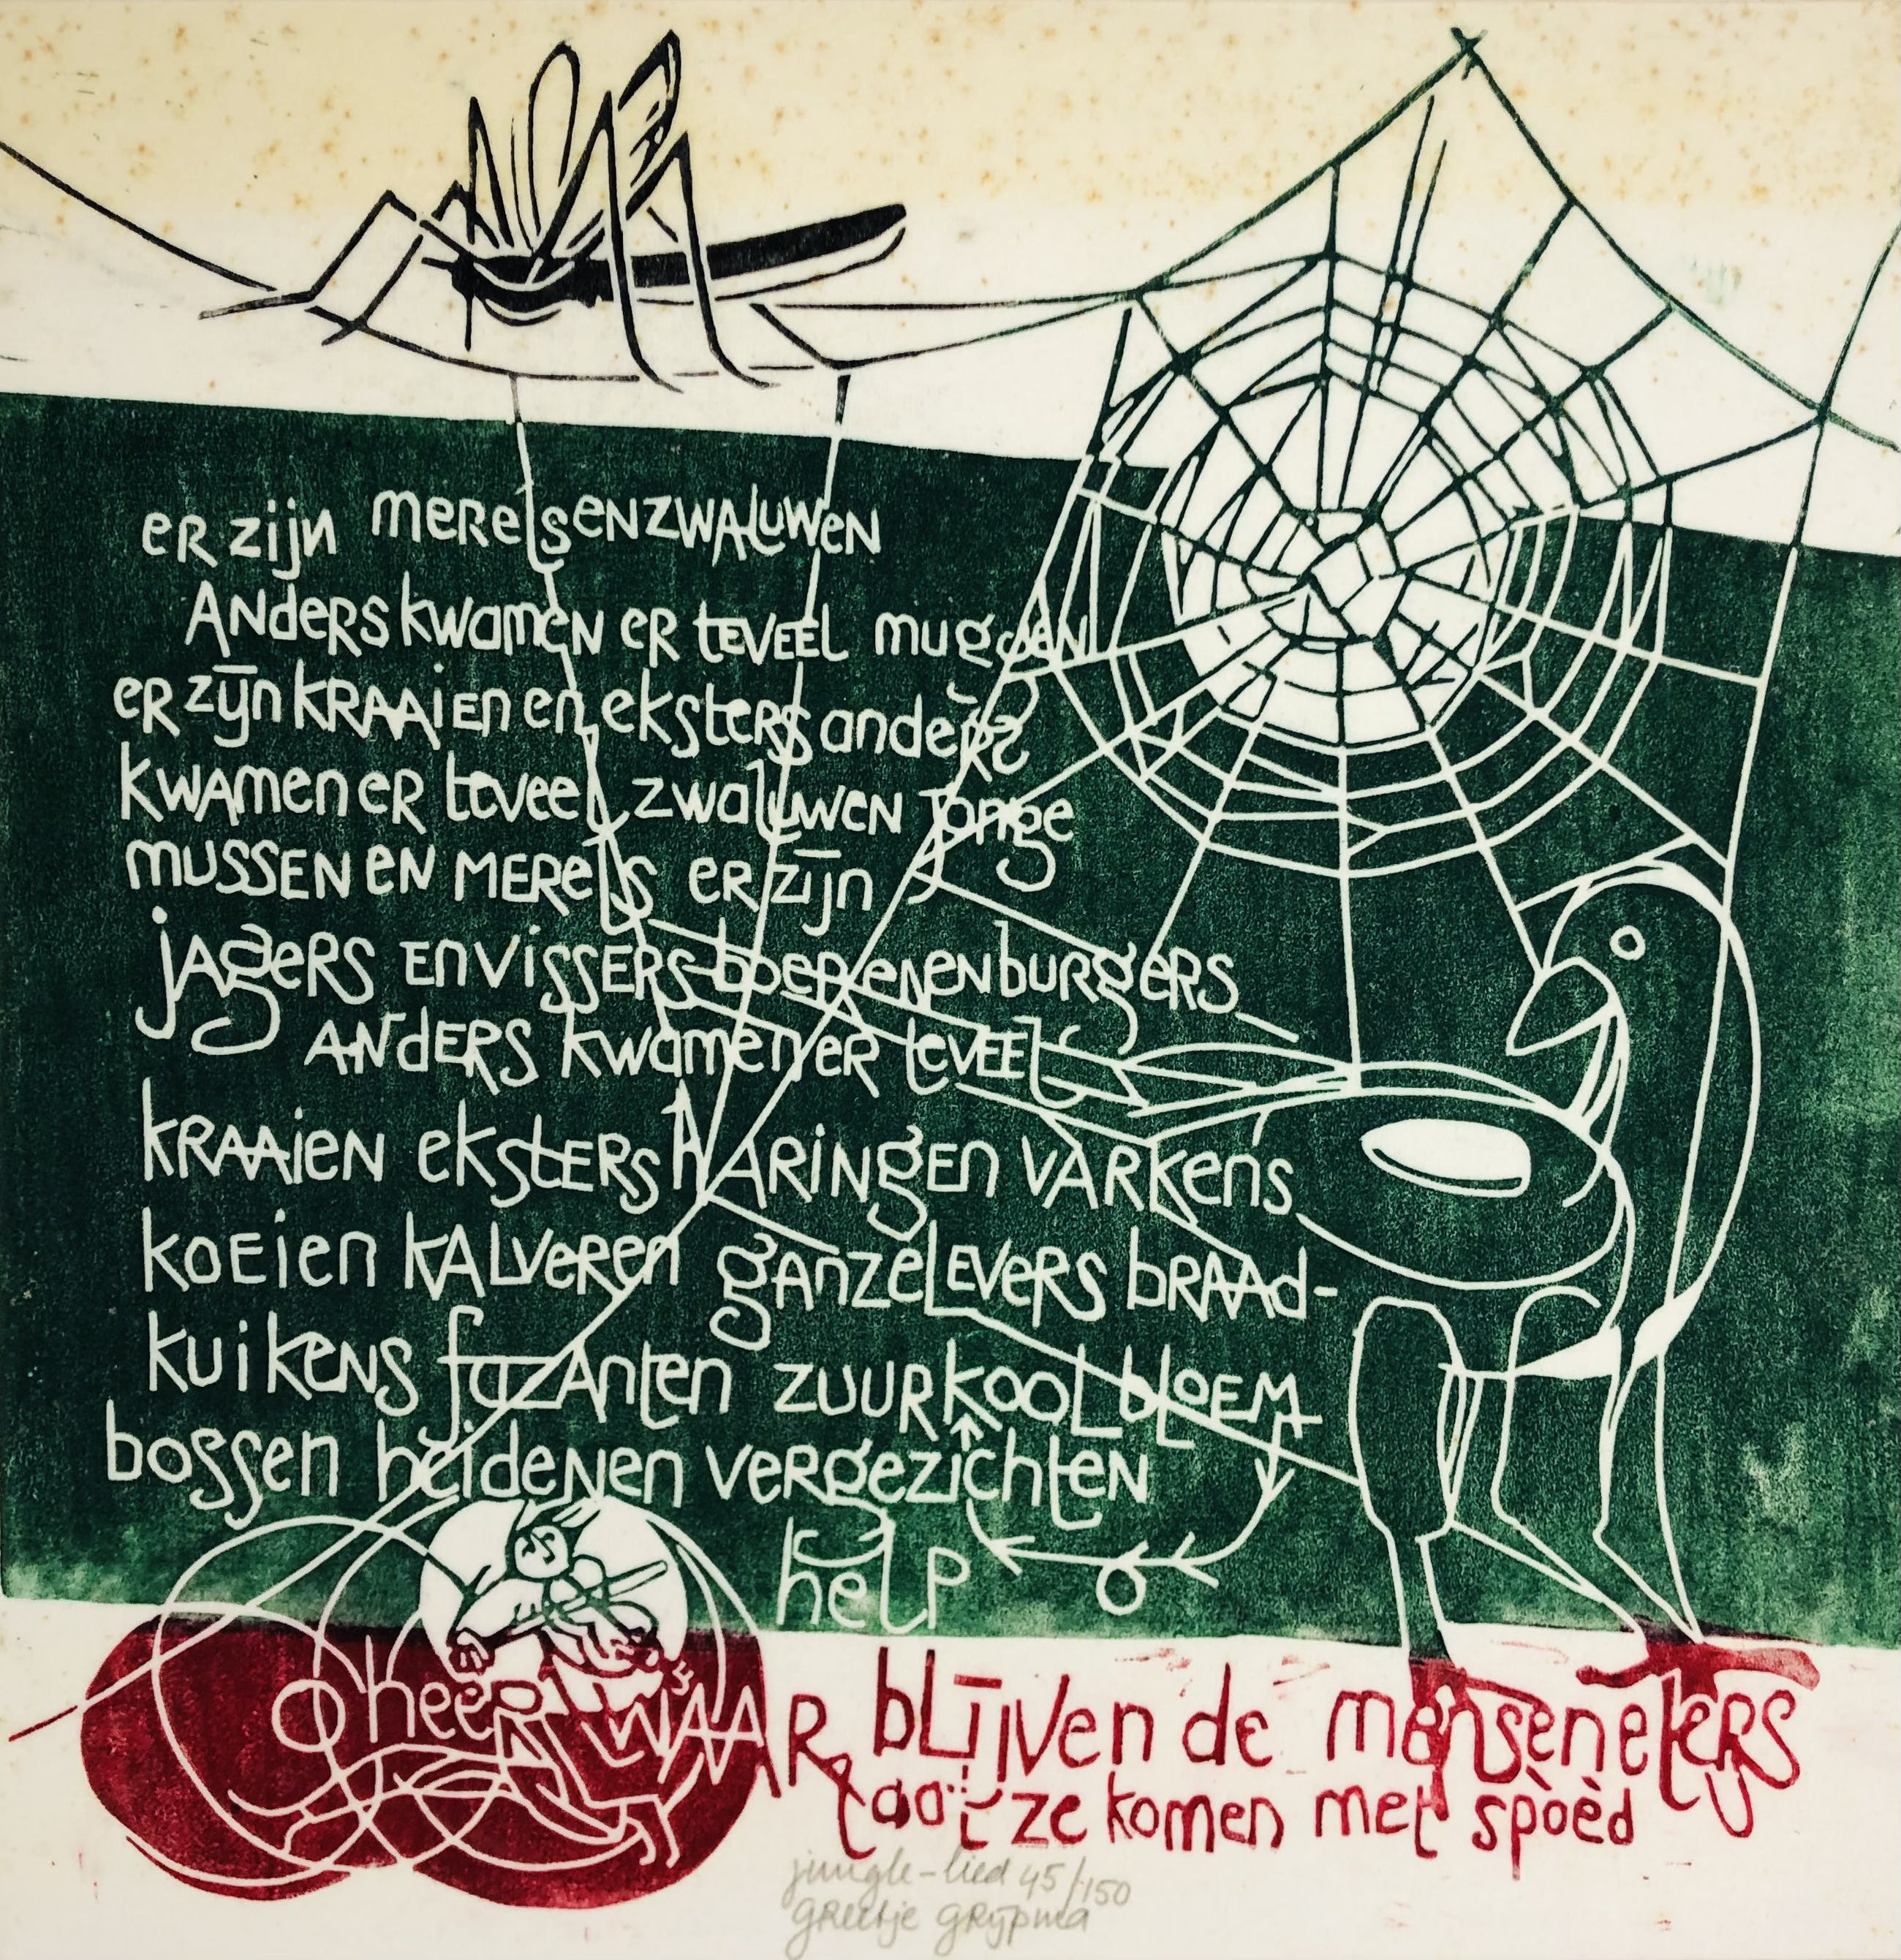 er zijn merels en zwaluwen
Anders kwamen er teveel muggen
er zijn kraaien en eksters anders
kwamen er teveel zwaluwen jonge
mussen en merels er zijn
jagers en vissers boeren en burgers
anders kwamen er teveel
kraaien eksters haringen varkens
koeien kalveren ganzelevers braad-
kuikens fazanten zuurkool bloem-
bossen heidenen vergezichten
help
o heer waar blijven de menseneters
laat ze komen met spoed
jungle-lied 45/150
greetje grijpma